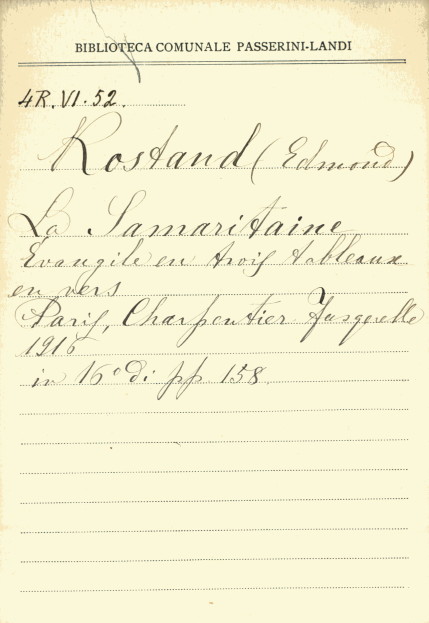 BIBLIOTECA COMUNALE PASSERINI-LANDI
4R.VI.52.
Rostand (Edmond)
La Samaritaine
Evangile en trois tableaux
en vers
Paris, Charpentier Fasquelle
1916
in 16° di pp 158.